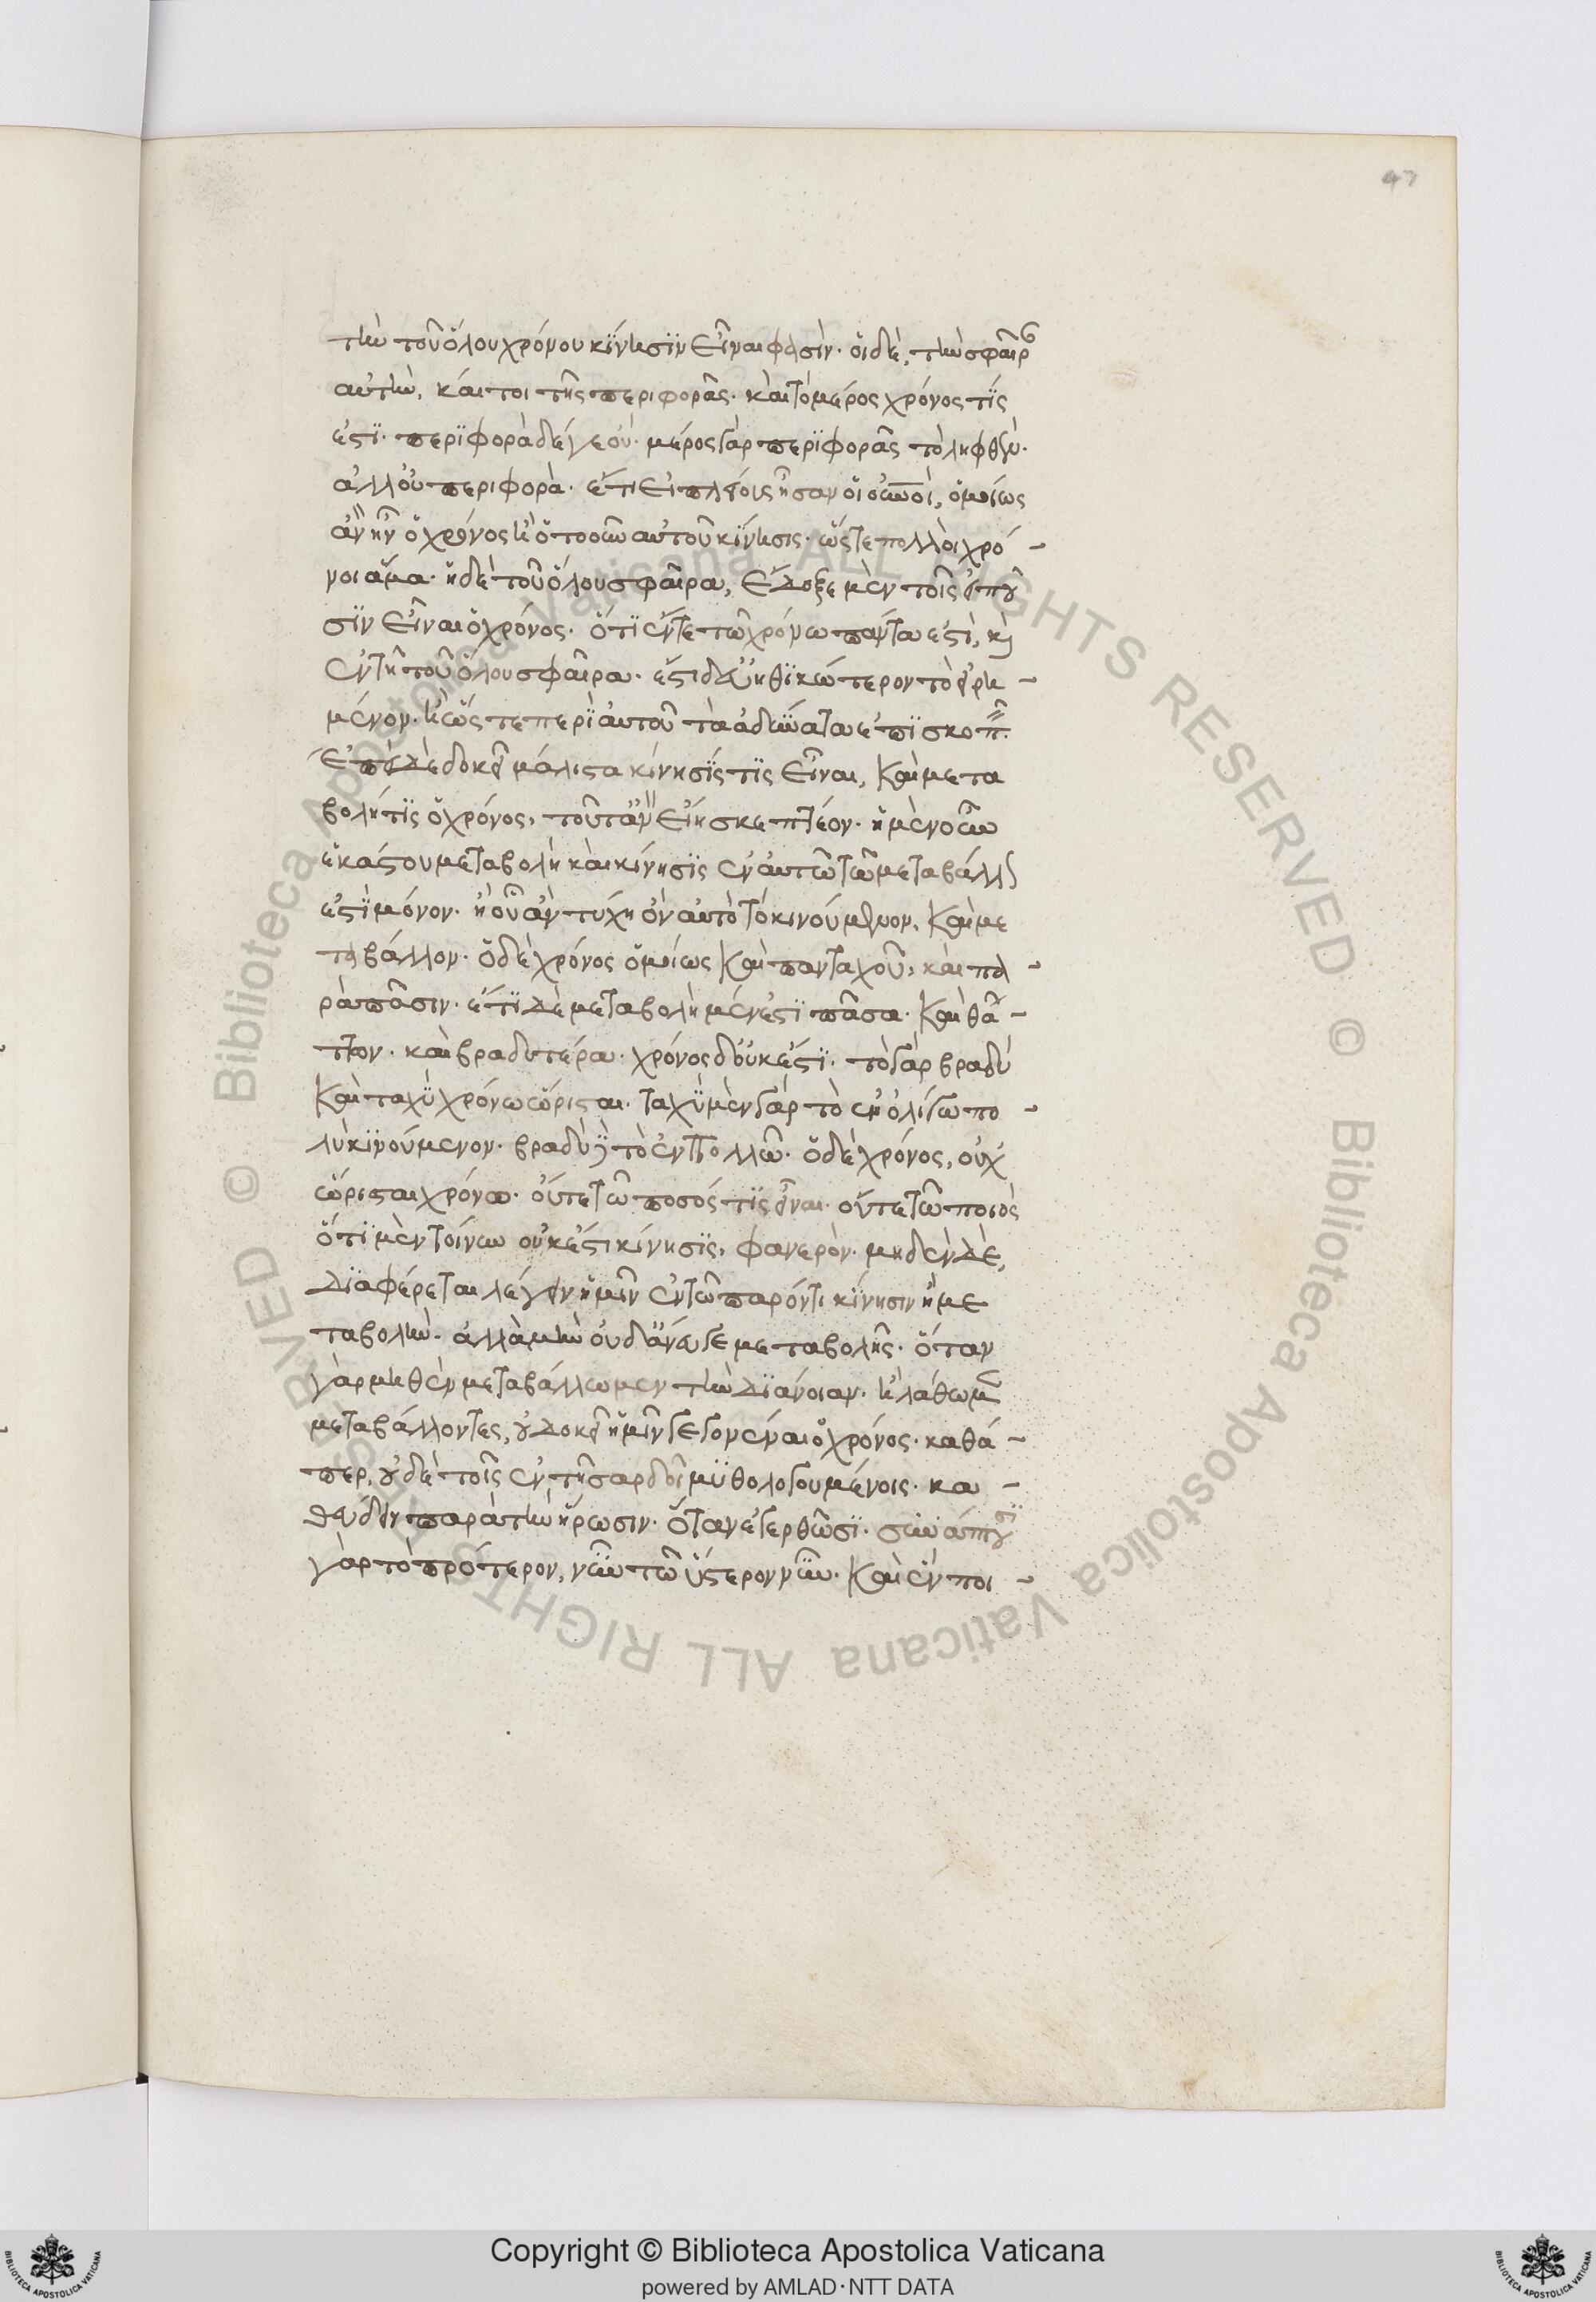 47
τὴν τοῦ ὅλου χρόνου κίνησϊν εἶναι φασὶν· οἱ δὲ, τὴν σφαῖρ
αὐτὴν, καίτοι τῆς περιφορᾶς· καὶ τὸ μέρος χρόνος τίς
ἐστϊ· περϊφορὰ δέ γε οὔ· μέρος γὰρ περϊφορᾶς τὸ ληφθὲν·
ἀλλ' οὐ περιφορὰ· ἔτι εἰ πλείους ἦσαν οἱ οὐνοὶ, ὁμοίως
ἂν ἦν ὁ χρόνος ἡ ὁτουοῦν αὐτοῦ κίνησις· ὥστε πολλοὶ χρό-
νοι ἅμα· ἡ δὲ τοῦ ὅλου σφαῖρα, ἔδοξε μὲν τοῖς εἰποῦ
σϊν εἶναι ὁ χρόνος· ὅτϊ ἔν τε τῶ χρόνω πάντα ἐστὶ, κ
ἐν τῆ τοῦ ὅλου σφαῖρα· ἔστι δ' εὐηθϊκώτερον τὸ εἰρη-
μένον· ἢ ὥστε περὶ αὐτοῦ τὰ ἀδύνατα ἐπϊσκοπ
ἐπεὶ δὲ δοκεῖ μάλιστα κίνησϊς τϊς εἶναι, καὶ μετα
βολή τϊς ὁ χρόνος, τοῦτ' ἂν εἴη σκεπτέον· ἡ μὲν οὖν
ἑκάστου μεταβολὴ καὶ κίνησϊς ἐν αὐτῶ τῶ μεταβάλλ
ἐστϊ μόνον· ἢ οὗ ἂν τύχη ὂν αὐτὸ τὸ κινούμενον, καὶ με
ταβάλλον· ὁ δὲ χρόνος ὁμοίως καὶ πανταχοῦ, καὶ πα-
ρὰ πᾶσιν· ἔτϊ δὲ μεταβολὴ μέν ἐστϊ πᾶσα· καὶ θᾶ-
ττον· καὶ βραδυτέρα· χρόνος δ' οὐκ ἔστϊ· τὸ γὰρ βραδὺ
καὶ ταχὺ χρόνω ὥρισται· ταχὺ μὲν γὰρ τὸ ἐν ὀλίγω πο-
λὺ κϊνούμενον· βραδὺ δὲ τὸ ἐν πολλῶ· ὁ δὲ χρόνος, οὐχ
ὥρισται χρόνω· οὔτε τῶ ποσός τϊς εἶναι· οὔτε τῶ ποιὸς
ὅτϊ μὲν τοίνυν οὐκ ἔστι κίνησϊς, φανερὸν· μηδὲν δὲ,
δϊαφέρεται λέγειν ἡμῖν ἐν τῶ παρόντι κίνησιν ἢ με
ταβολὴν· ἀλλὰ μὴν οὐδ' ἄνευ γε μεταβολῆς· ὅταν
γὰρ μηθὲν μεταβάλλωμεν τὴν δϊάνοιαν· ἢ λάθωμεν
μεταβάλλοντες, οὐ δοκεῖ ἡμῖν γεγονέναι ὁ χρόνος· καθά-
περ, οὐδὲ τοῖς ἐν τῆ σαρδοῖ μϋθολογουμένοις· κα-
θεύδειν παρὰ τὴν ἥρωσιν· ὅταν ἐγερθῶσϊ· συνάπτουσϊ
γὰρ τὸ πρότερον, νῦν τῶ ὕστερον νῦν· καὶ ἓν ποι-